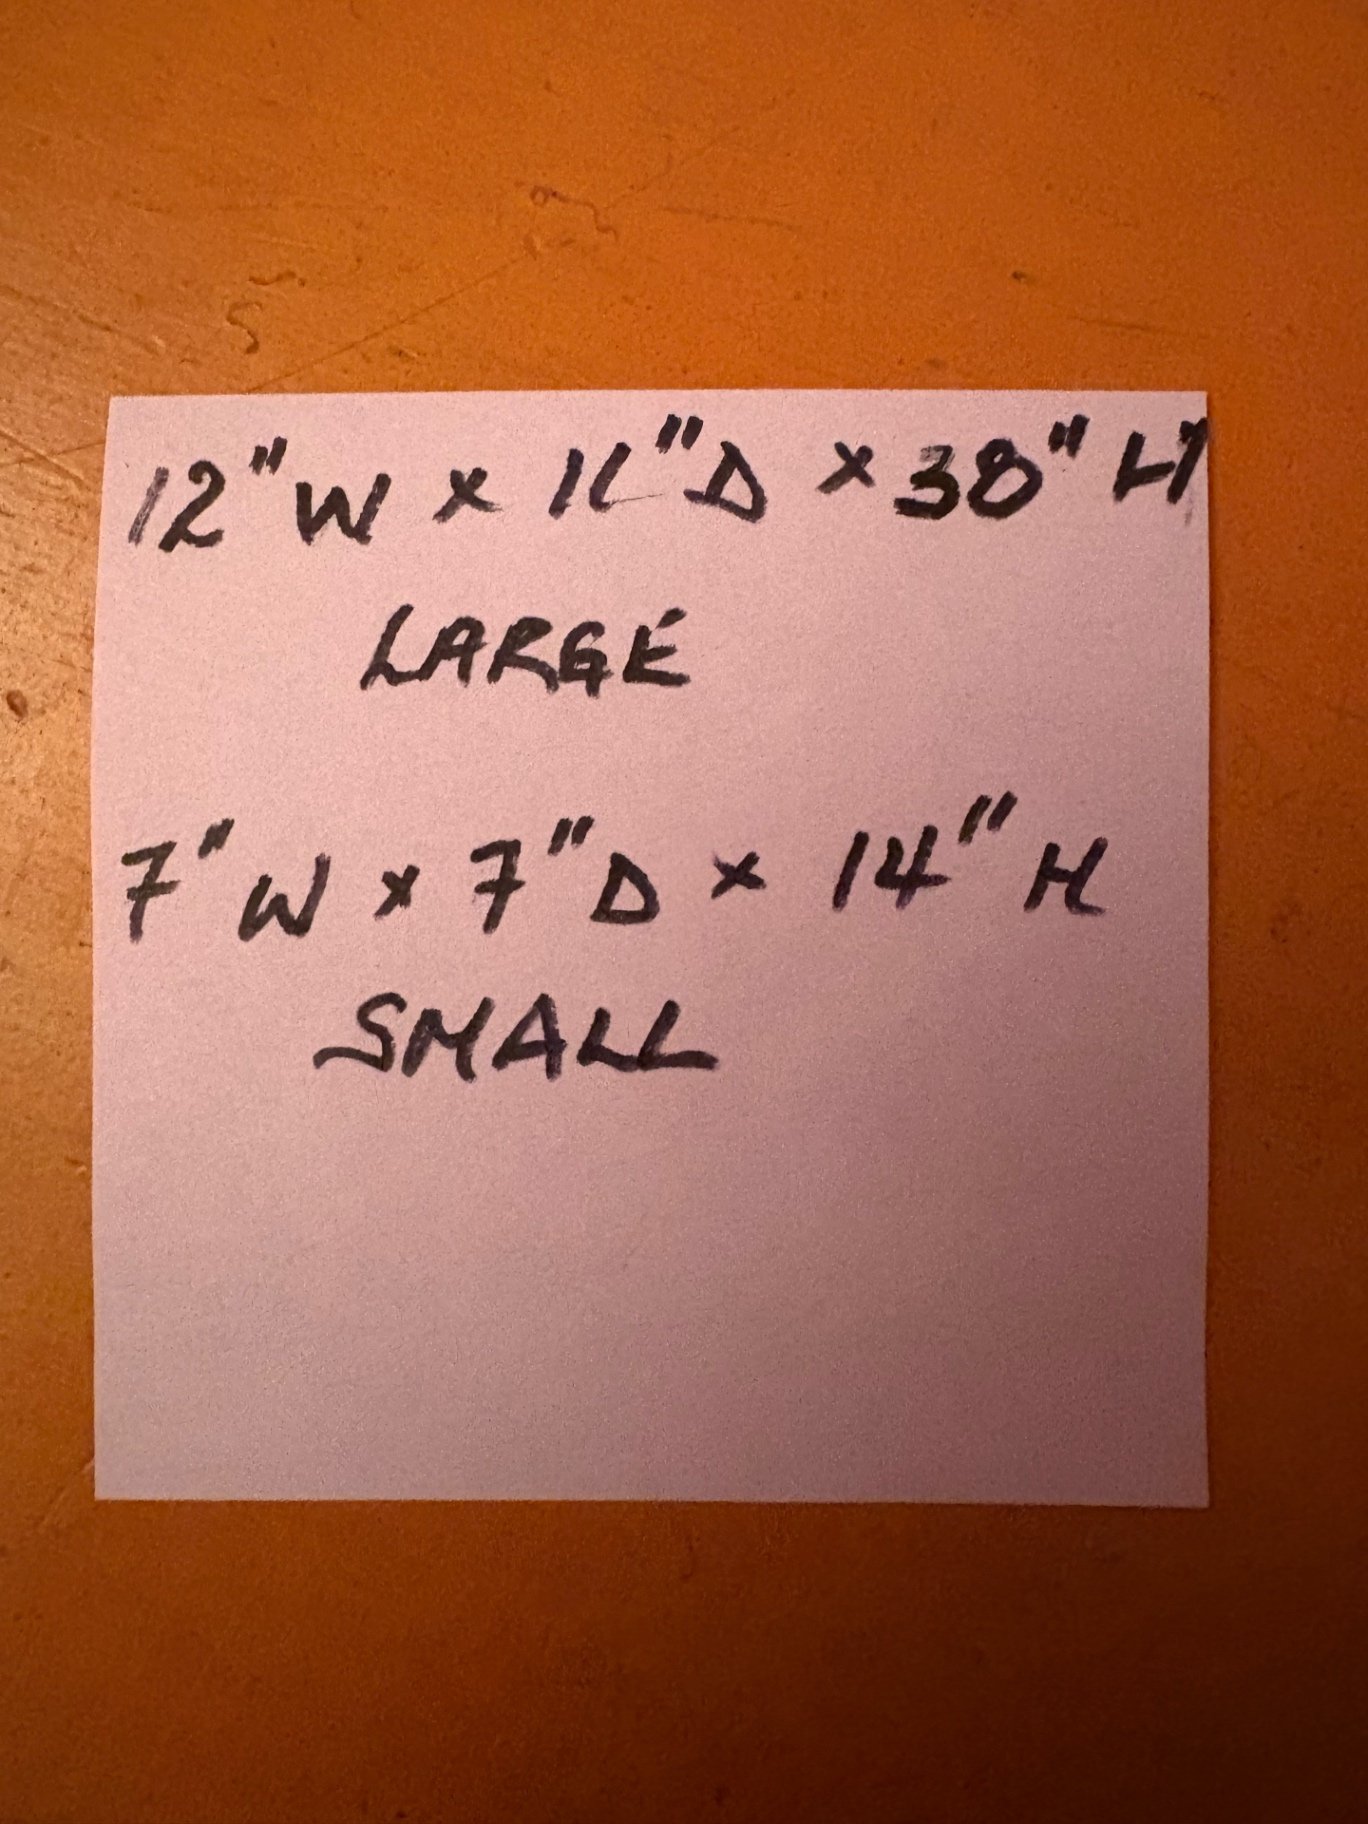 12" W x 11" D x 38" H
LARGE
7" W x 7" D x 14" H
SMALL